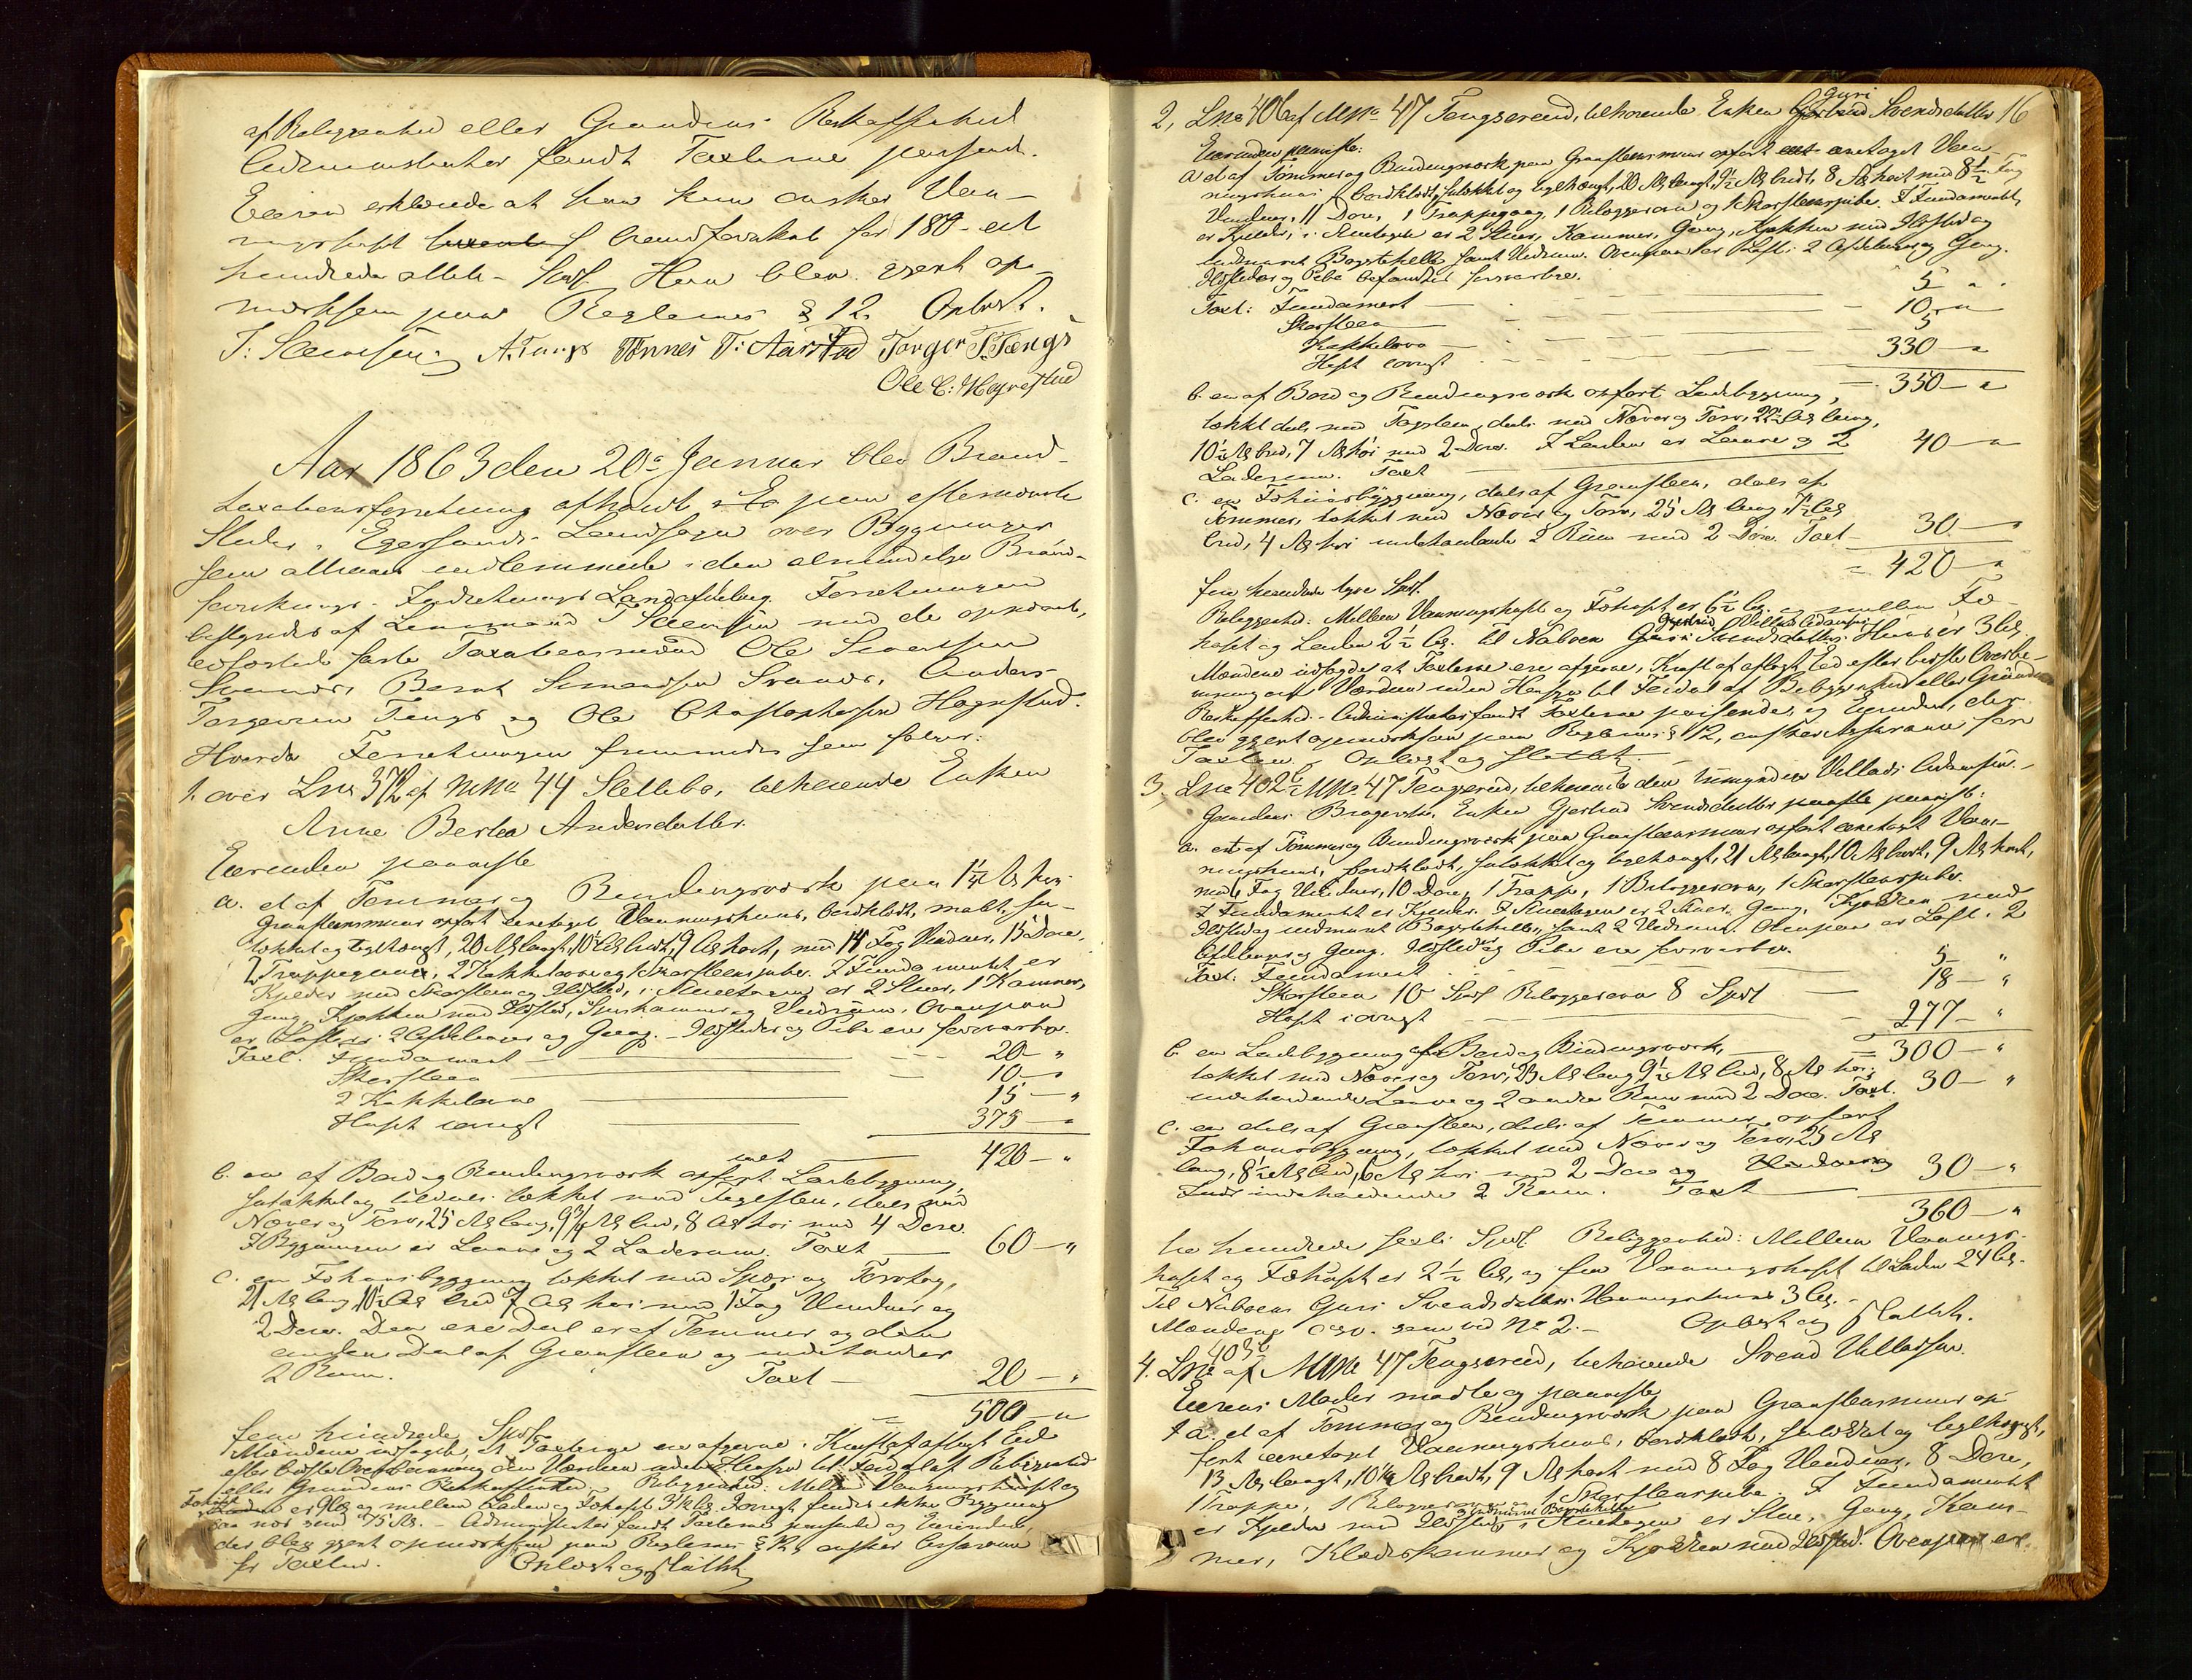 af Beliggenhed eller Grundens Beskaffenhed
Administrator fandt Taxterne passende.
Eieren erklærede at han kun ønsker Vaa-
ningshuset brandforsikret for 180- et
hundrede otteti- Spd. Han blev gjort op-
mærksom paa Reglernes § 12. Oplæst.
A. Tengs Tønnes T: Aarstad Torger T. Tengs
Ole C: Høgnestad
Aar 1863 den 20de Januar blev Brand-
taxationsforretning afholdt paa efternævnte
Steder i Egersunds Landsogn over Bygninger
som attraaes indlemmede i den almindelige Brand-
forsikrings-Indretnings Landafdeling. Forretningen
bestyredes af Lensmand med de opnævnte,
edfæstede faste Taxationsmænd Ole Sivertsen
Svanes, Bernt Simonsen Svanes, Anders
Torgersen Tengs og Ole Christophersen Høgnestad.
Hvorda Forretningen fremmedes som følger:
1. over Lno 372 af MNo 44 Slettebø, tilhørende Enken
Anne Bertea Andersdatter.
Eierinden paaviste
a. et af Tømmer og Bindingsværk paa 1 1/4 Al. høi
Graastensmuur opført eenetages Vaaningshuus, bordklædt, malt,
20 Al. langt, 10 1/2 Al. bredt, 9 Al. høit, med 14 Fag Vinduer, 15 Døre,
2 Trappegange, 2 Kakkelovne og 1 Skorsteenspibe. I Fundamentet er
Kjelder med Skorsteen og Ildsted, i Stueetagen er 2 Stuer, 1 Kammer,
Gang, Kjøkken med Ildsted, Spiskammer og Vedrum. Ovenpaa
er Loft i 2 Afdelinger og Gang. Ildsteder og Pibe ere forsvarlige.
Taxt. Fundament 20 - "
Skorsteen 10 - "
2 Kakkelovne 15 - "
Huset iøvrigt 375 - "
420 - "
b. en af Bord og Bindingsværk opført Ladebygning,
tækket med Tagsteen, deels med
Næver og Torv, 25 Al. lang, 9 3/4 Al. bred, 8 Al. høi med 4 Døre.
I Bygningen er Laave og 2 Laderum. Taxt 60 - "
c. en Fæhuusbygning tækket med Spær og Torvtag,
21 Al. lang, 10 1/2 Al. bred, 7 Al. høi med 1 Fag Vinduer og
2 Døre. Den ene Deel er af Tømmer og den
anden Deel af Graasteen og indeholder
2 Rum. Taxt - 20 - "
= 500 - "
fem hundrede Spd.
Mændene udsagde, at Taxterne ere afgivne i Kraft af aflagt Eed
efter bedste Overbeviisning om Værdien uden Hensyn til Fordeel af Beliggenhed
eller Grundens Beskaffenhed. Beliggenhed: Mellem Vaaningshuset og
Fæhuset er Al. og mellem Laden og Fæhuset 3 1/2 Al. Iøvrigt findes ikke Bygning
nær end 75 Al. - Administrator fandt Taxterne passende og Eierinden,
der blev gjort opmærksom paa Reglernes § 12, ønsker Assurance
for Taxten. Oplæst og sluttet
16
2, Lno 406 af MNo 47 Tengsereid, tilhørende Enken Guri Svendsdatter
Eierinden paaviste:
a et af Tømmer og Bindingsværk paa Graasteensmuur opført eenetaget Vaa-
ningshuus, bordklædt, og teglhængt, 20 Al. langt, 9 1/2 Al. bredt, 8 Al. høit med 8 1/2 Fag
Vinduer, 11 Døre, 1 Trappegang, 1 Bilæggerovn og 1 Skorsteenspibe. I Fundamentet
er Kjelder, i Stuetagen er 2 Stuer, Kammer, Gang, Kjøkken med Ildsted og
indmuret Bagstehelle samt Vedrum. Ovenpaa er Loft i 2 Afdelinger og Gang.
Ildsteder og Pibe befandtes forsvarlige.
Taxt: Fundament 5 " "
Skorsteen 10 - "
Kakkelovn 5
Huset iøvrigt 330 - "
= 350 - "
b. en af Bord og Bindingsværk opført Ladebygning,
tækket deels med Tagsteen, deels med Næver og Torv, 22 1/2 Al. lang,
10 1/2 Al. bred, 7 Al. høi med 2 Døre. I Laden er Laave og 2
Laderum. Taxt 40 - "
c. en Fæhuusbygning, deels af Graasteen, deels af
Tømmer, tækket med Næver og Torv, 25 Al. lang, 7 1/2 Al.
bred, 4 Al. høi indeholdende 2 Rum med 2 Døre. Taxt - 30 - "
= 420 - "
fire hundrede tyve Spd.
Beliggenhed: Mellem Vaaningshuset og Fæhuset er 6 1/2 Al. og mellem Fæ-
huset og Laden 2 1/2 Al. til Naboen Gjertrud Svendsdatters Huus er 3 Al.
Mændene udsagde at Taxterne ere afgivne i Kraft af aflagt Eed efter bedste Overbe-
viisning om Værdien uden Hensyn til Fordeel af Beliggenhed eller Grundens
Beskaffenhed. - Administrator fandt Taxterne passende, og Eierinden, der
blev gjort opmærksom paa Reglernes § 12, ønsker Assurance for
Taxten. Oplæst og sluttet. -
3, Lno 402 b MNo 47 Tengsereid, tilhørende den umyndige Villads Adamsen. -
Gaardens Brugerske, Enken Gjertrud Svendsdatter paaviste:
a. et af Tømmer og Bindingsværk paa Graasteensmuur opført eenetaget Vaa-
ningshuus, bordklædt, og teglhængt, 21 Al. langt, 10 Al. bredt, 9 Al. høit,
med Fag Vinduer, 10 Døre, 1 Trappe, 1 Bilæggerovn, 1 Skorsteenspibe.
I Fundamentet er Kjelder. I Stuetagen er 2 Stuer, Gang, Kjøkken med
Ildsted og indmuret Bagstehelle, samt 2 Vedrum. Ovenpaa er Loft i 2
Afdelinger og Gang. Ildsted og Pibe ere forsvarlige.
Taxt: Fundament 5 "
Skorsteen 10 Spd Bilæggerovn 8 Spd 18 - "
Huset iøvrigt 277 - "
= 300 - "
b. en Ladebygning af Bord og Bindingsværk,
tækket med Næver og Torv, 23 Al. lang, 9 1/2 Al. bred, 8 Al. høi,
indeholdende Laave og 2 andre Rum med 2 Døre. Taxt. 30 - "
c. en deels af Graasteen, deels af Tømmer opført
Fæhuusbygning, tækket med Næver og Torv, 25 Al.
lang, 8 1/2 Al. bred, Al. høi med 2 Døre og
indeholdende 2 Rum. Taxt 30 - "
360 - "
tre hundrede sexti Spd Beliggenhed: Mellem Vaanings-
huset og Fæhuset er 2 1/2 Al., og fra Vaaningshuset til Laden 24 Al.
Til Naboens Guri Svendsdatters Vaaningshuus 3 Al. -
Mændene o.s.v. som ved No 2. - Oplæst og sluttet.
4. Lno 403 b af MNo 47 Tengsereid, tilhørende Svend Villadsen.
Eierens Moder mødte og paaviste
a. et af Tømmer og Bindingsværk paa Graasteensmuur op-
ført eenetaget Vaaningshuus, bordklædt, og teglhængt,
13 Al. langt, 10 1/4 Al. bredt, 9 Al. høit med 8 Fag Vinduer, 8 Døre,
1 Trappe, 1 Bilæggerovn og 1 Skorsteenspibe. I Fundamentet
er Kjelder med Ildsted og indmuret Bagstehelle, i Stuetagen er Stue, Gang, Kam-
mer, Klædeskammer og Kjøkken med Ildsted. Ovenpaa er